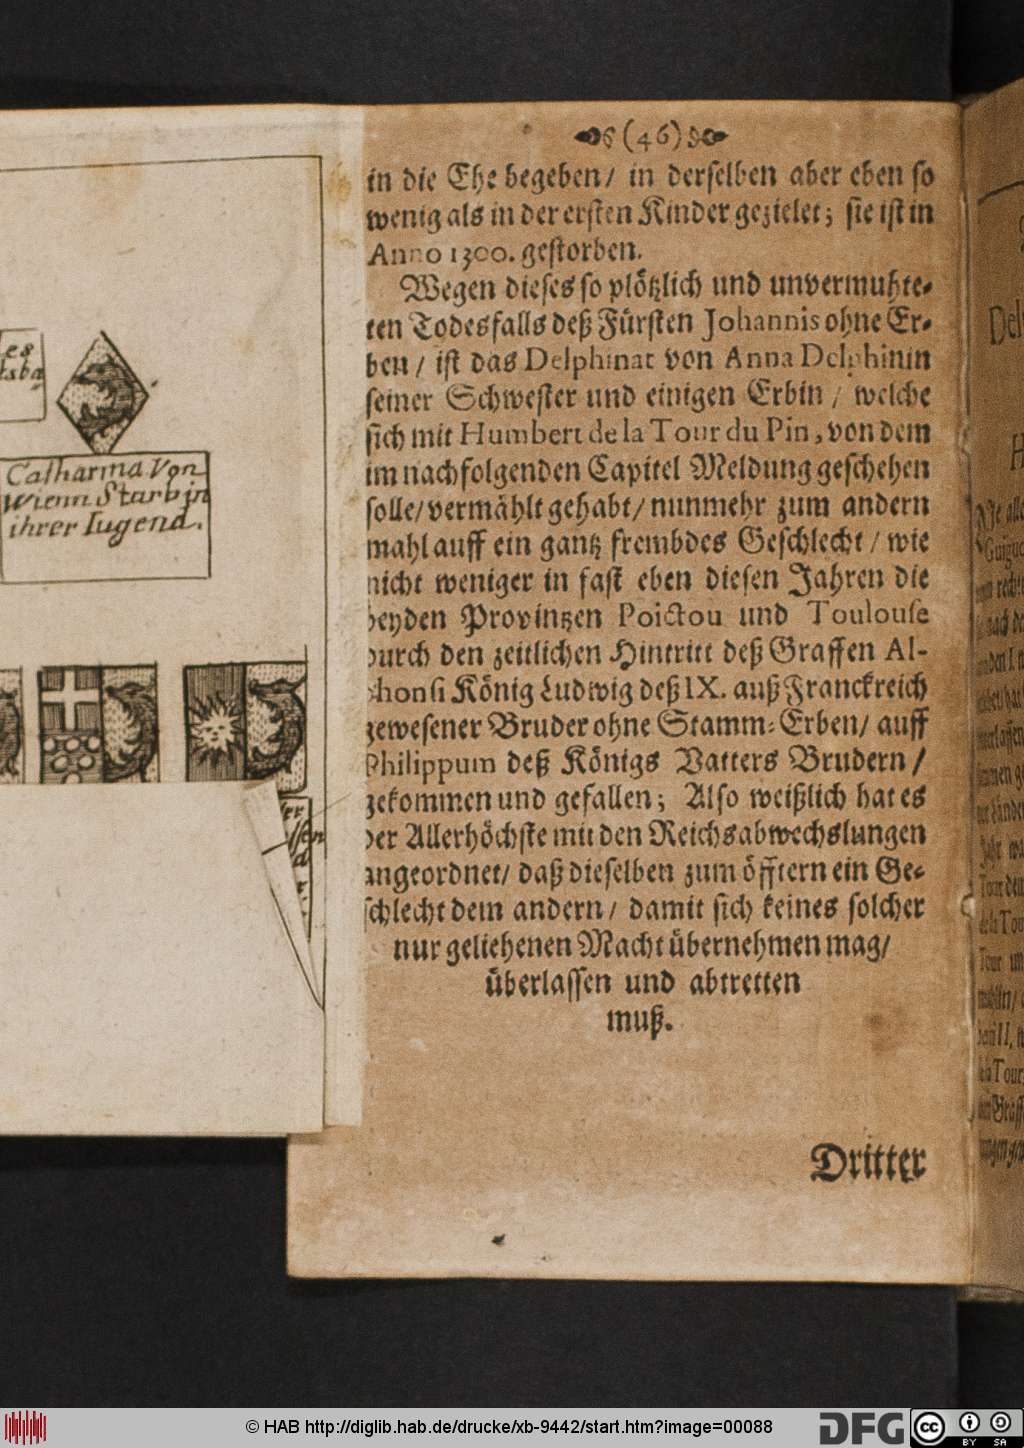 (46)
in die Ehe begeben/ in derselben aber eben so
wenig als in der ersten Kinder gezielet; sie ist in
Anno 1300. gestorben.
Wegen dieses so plötzlich und unvermuhte-
ten Todesfalls deß Fürsten Johannis ohne Er-
ben/ ist das Delphinat von Anna Delphinin
seiner Schwester und einigen Erbin/ welche
sich mit Humbert de la Tour du Pin, von dem
im nachfolgenden Capitel Meldung geschehen
solle/ vermählt gehabt/ nunmehr zum andern
mahl auff ein gantz frembdes Geschlecht/ wie
nicht weniger in fast eben diesen Jahren die
beyden Provintzen Poictou und Toulouse
durch den zeitlichen Hintritt deß Graffen Al-
phonsi König Ludwig deß IX. auß Franckreich
gewesener Bruder ohne Stamm-Erben/ auff
Philippum deß Königs Vatters Brudern/
gekommen und gefallen; Also weißlich hat es
der Allerhöchste mit den Reichsabwechslungen
angeordnet/ daß dieselben zum öfftern ein Ge-
schlecht dem andern/ damit sich keines solcher
nur geliehenen Macht übernehmen mag/
überlassen und abtretten
muß.
Dritter
Catharina Von
Wienn Starb in
ihrer Iugend.
© HAB http://diglib.hab.de/drucke/xb-9442/start.htm?image=00088
DFG
cc BY SA